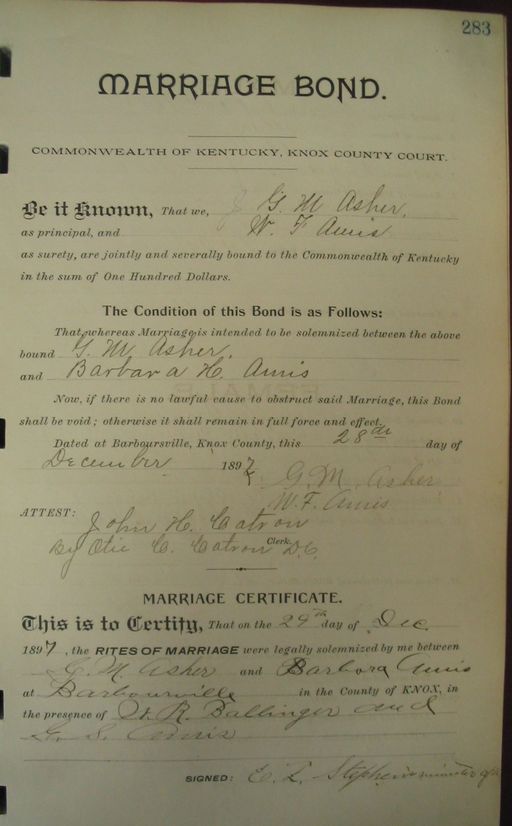 283
MARRIAGE BOND.
COMMONWEALTH OF KENTUCKY, KNOX COUNTY COURT.
Be it Known, That we, G. M Asher,
as principal, and W. F Amis
as surety, are jointly and severally bound to the Commonwealth of Kentucky
in the sum of One Hundred Dollars.
The Condition of this Bond is as Follows:
That whereas Marriage is intended to be solemnized between the above
bound G. M. Asher,
and Barbara H. Amis
Now, if there is no lawful cause to obstruct said Marriage, this Bond
shall be void; otherwise it shall remain in full force and effect.
Dated at Barboursville, Knox County, this 28th day of
December 1897
G. M. Asher
W. F. Amis
ATTEST: John H. Catron
By Otie C. Catron Clerk. D.C.
MARRIAGE CERTIFICATE.
This is to Certify, That on the 29th day of Dec.
1897, the RITES OF MARRIAGE were legally solemnized by me between
G. M. Asher and Barbora Amis
at Barbourville in the County of KNOX, in
the presence of W. R. Ballinger and
G. S. Amis
SIGNED: E. L. Stephens minister of